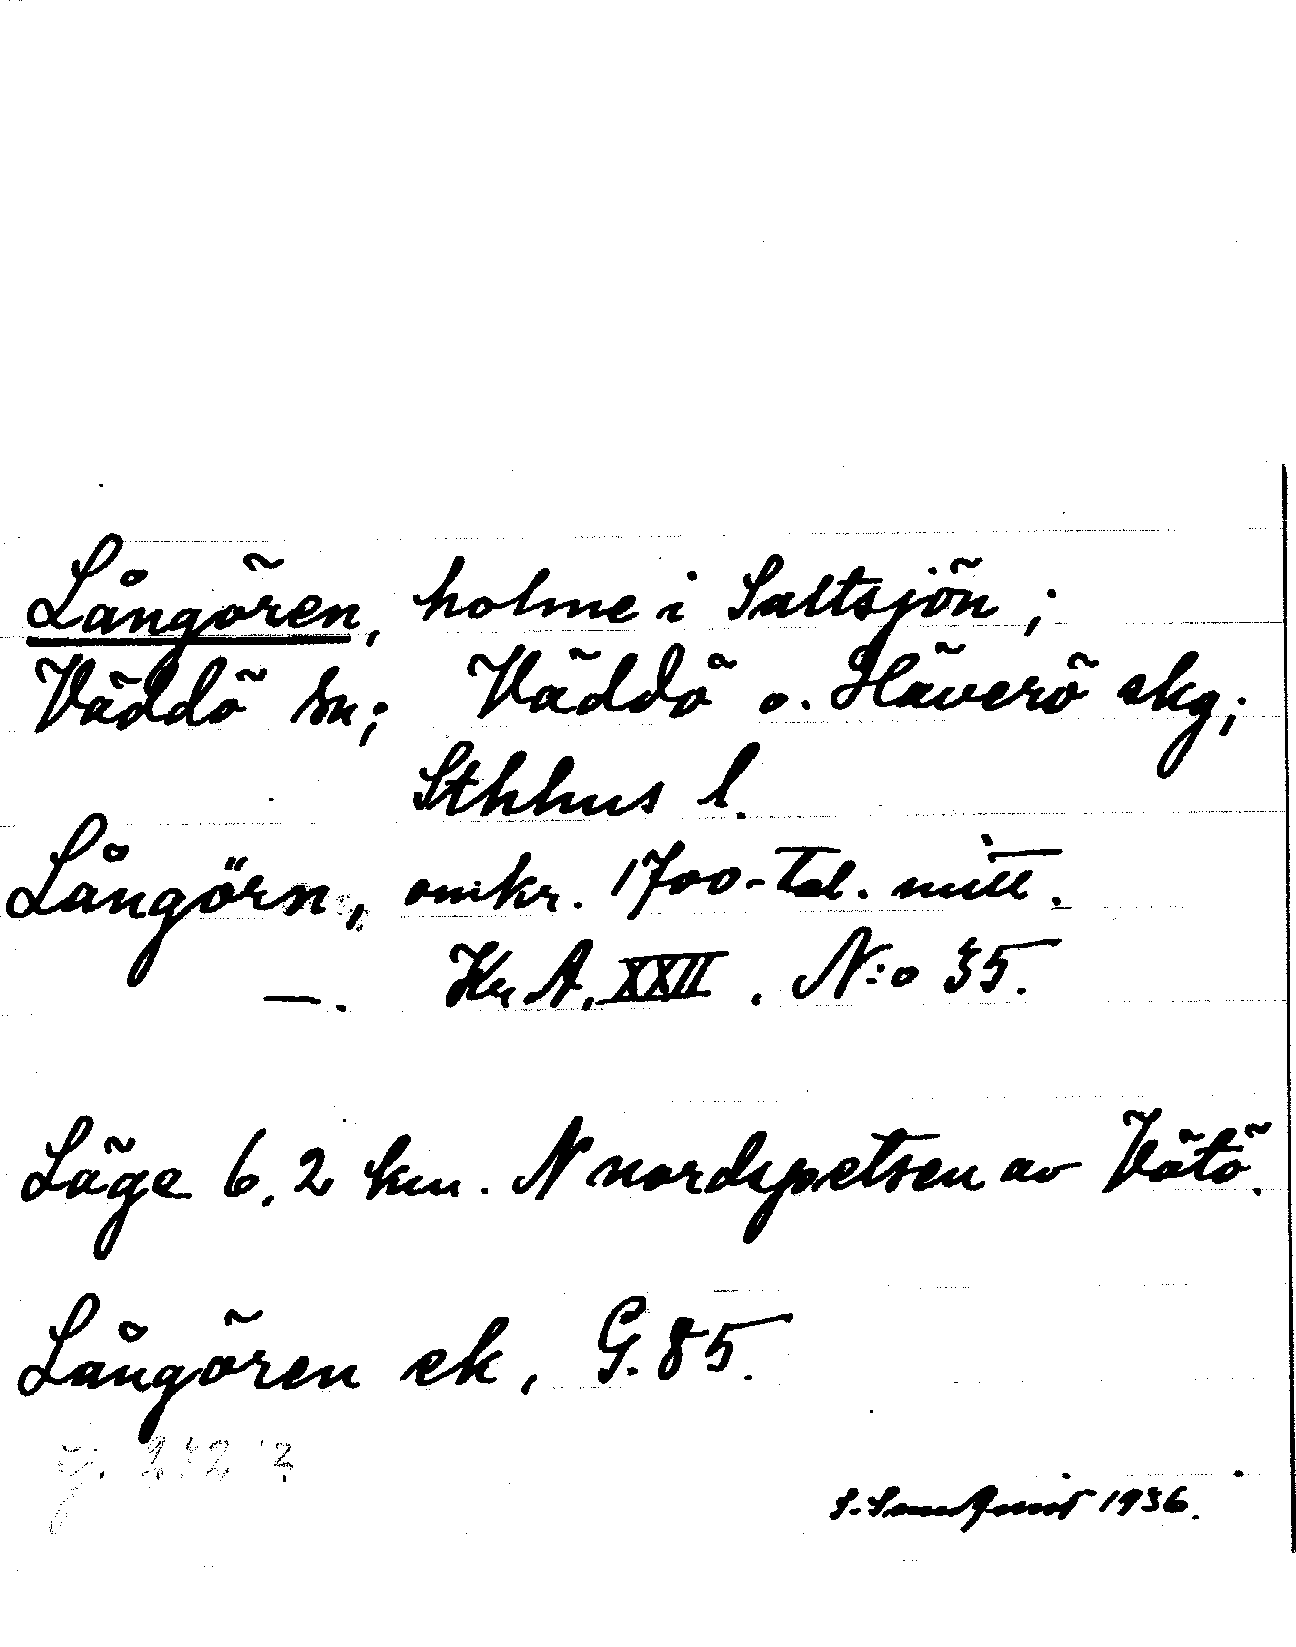 Långören, holme i Saltsjön;
Väddö sn; Väddö o. Häverö skg;
Sthhus l.
Långörn, omkr. 1700-tal. mitt.
—. Kr A. XXII. N:o 35.
Läge 6,2 km. N nordspetsen av Vätö.
Långören ek, G. 85.
1936.